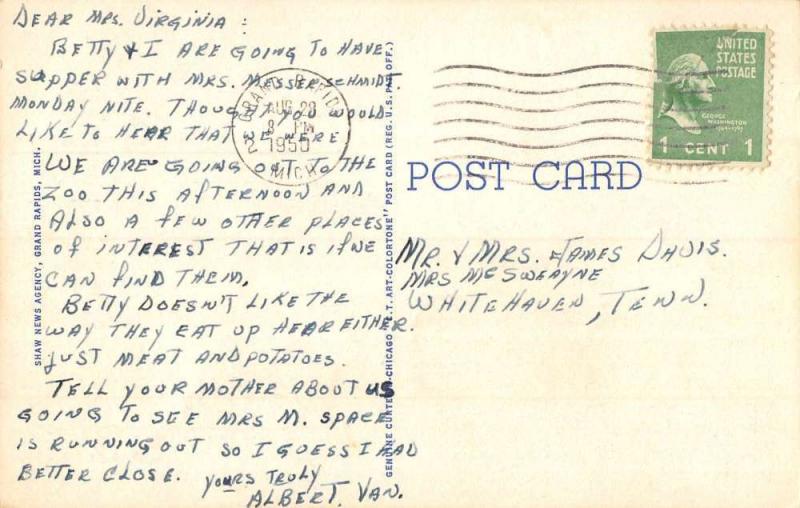 DEAR MRS. VIRGINIA:
BETTY & I ARE GOING TO HAVE
SUPPER WITH MRS. MESSERSCHMIDT.
MONDAY NITE. THOUGHT YOU WOULD
LIKE TO HEAR THAT WE WERE
WE ARE GOING OUT TO THE
ZOO THIS AFTERNOON AND
ALSO A FEW OTHER PLACES
OF INTEREST THAT IS IF WE
CAN FIND THEM.
BETTY DOESN'T LIKE THE
WAY THEY EAT UP HEAR EITHER.
JUST MEAT AND POTATOES.
TELL YOUR MOTHER ABOUT US
GOING TO SEE MRS M. SPACE
IS RUNNING OUT SO I GUESS I HAD
BETTER CLOSE. YOURS TRULY
ALBERT. VAN.
SHAW NEWS AGENCY, GRAND RAPIDS, MICH.
GENUINE CURTEICH-CHICAGO "C.T. ART-COLORTONE" POST CARD (REG. U.S. PAT. OFF.)
GRAND RAPIDS
AUG 28
8 PM
2 1950
MICH
UNITED
STATES
POSTAGE
GEORGE
WASHINGTON
1 CENT 1
POST CARD
MR. & MRS. JAMES DAVIS.
MRS MCSWEAYNE
WHITEHAVEN, TENN.